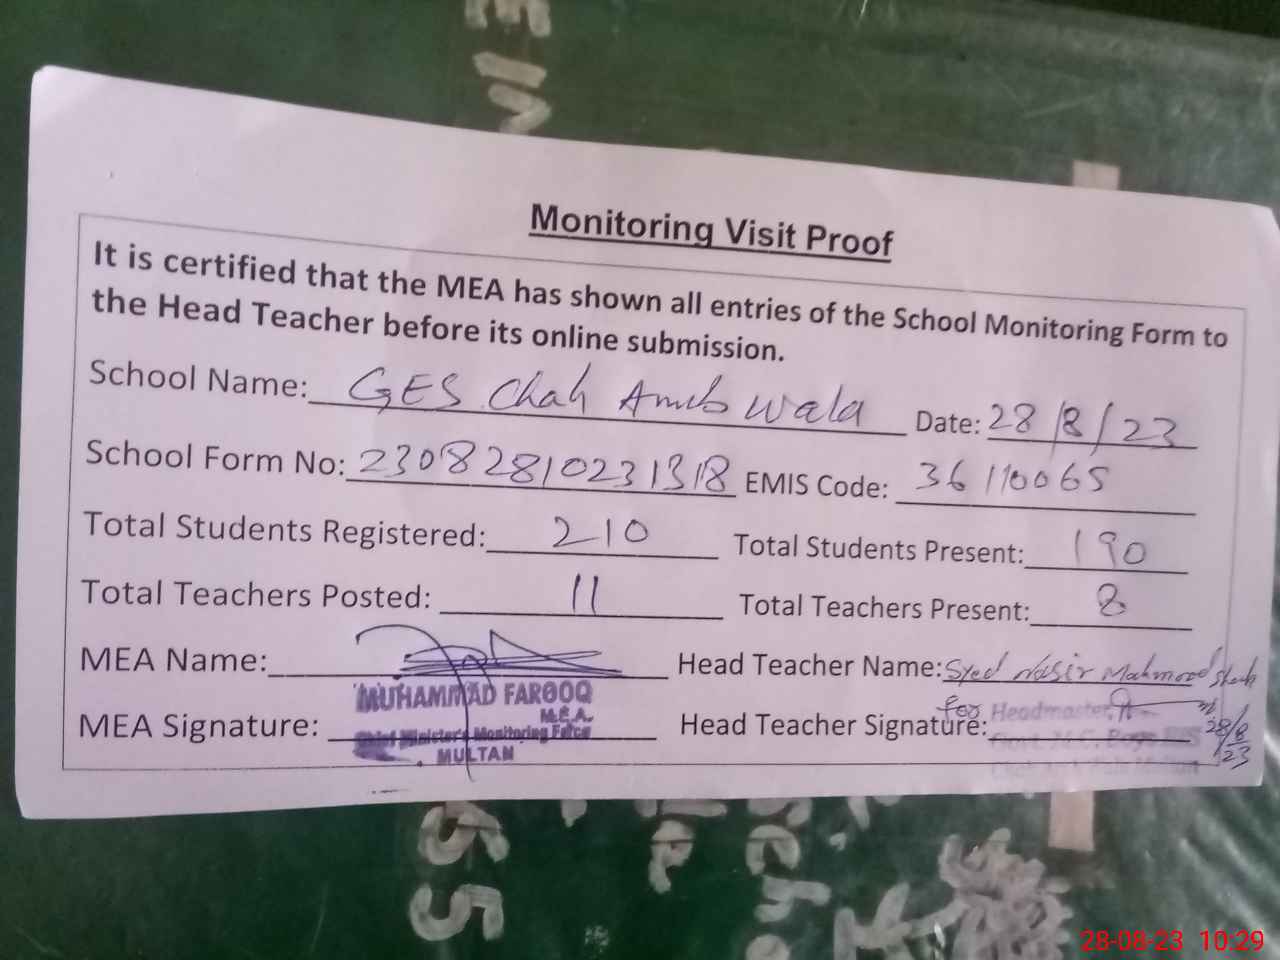 EIN
Monitoring Visit Proof
It is certified that the MEA has shown all entries of the School Monitoring Form to
the Head Teacher before its online submission.
School Name: GES Chah Amb wala Date: 28/8/23
School Form No: 23082810231318 EMIS Code: 36110065
Total Students Registered: 210 Total Students Present: 190
Total Teachers Posted: 11 Total Teachers Present: 8
MEA Name: Head Teacher Name: Syed Nasir Mahmood Shah
MUHAMMAD FAROOQ
M.E.A.
MEA Signature: Head Teacher Signature: for Headmaster 28/8/23
Chief Minister's Monitoring Force
MULTAN
28-08-23 10:29